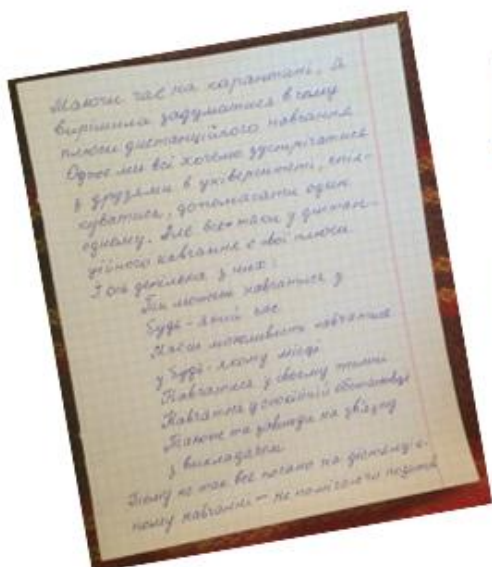 Маючи час на карантині, я
вирішила задуматися в чому
плюси дистанційного навчання
Одже ми всі хочемо зустрічатися
з друзями в університеті, спіл-
куватися, допомагати один
одному. Але все-таки у дистан-
ційного навчання є свої плюси
І ось декілька з них:
Ти можеш навчатися у
будь-який час
Маєш можливість навчатися
у будь-якому місці
Навчатися у своєму темпі
Навчання у спокійній обстановці
Також ти завжди на зв'язку
з викладачем
Тому не так все погано на дистанцій-
ному навчанні — не